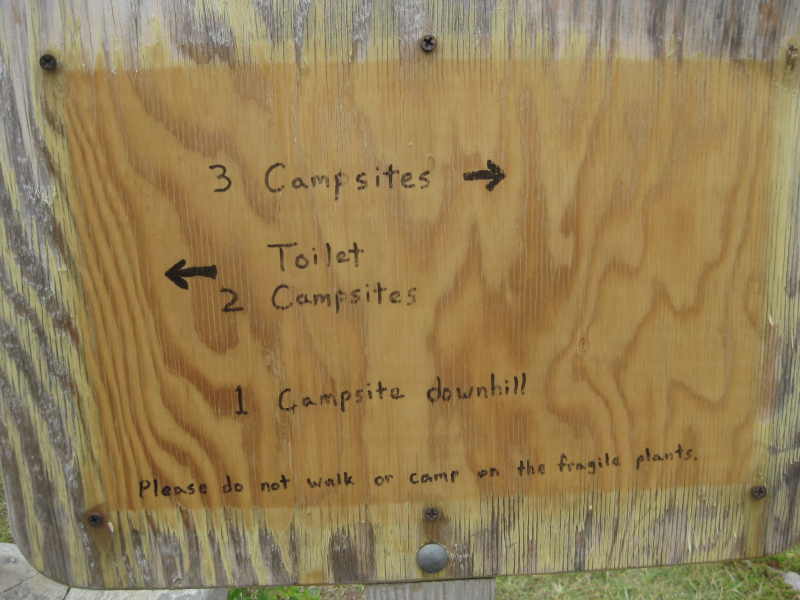 3 Campsites →
Toilet
← 2 Campsites
1 Campsite downhill
Please do not walk or camp on the fragile plants.